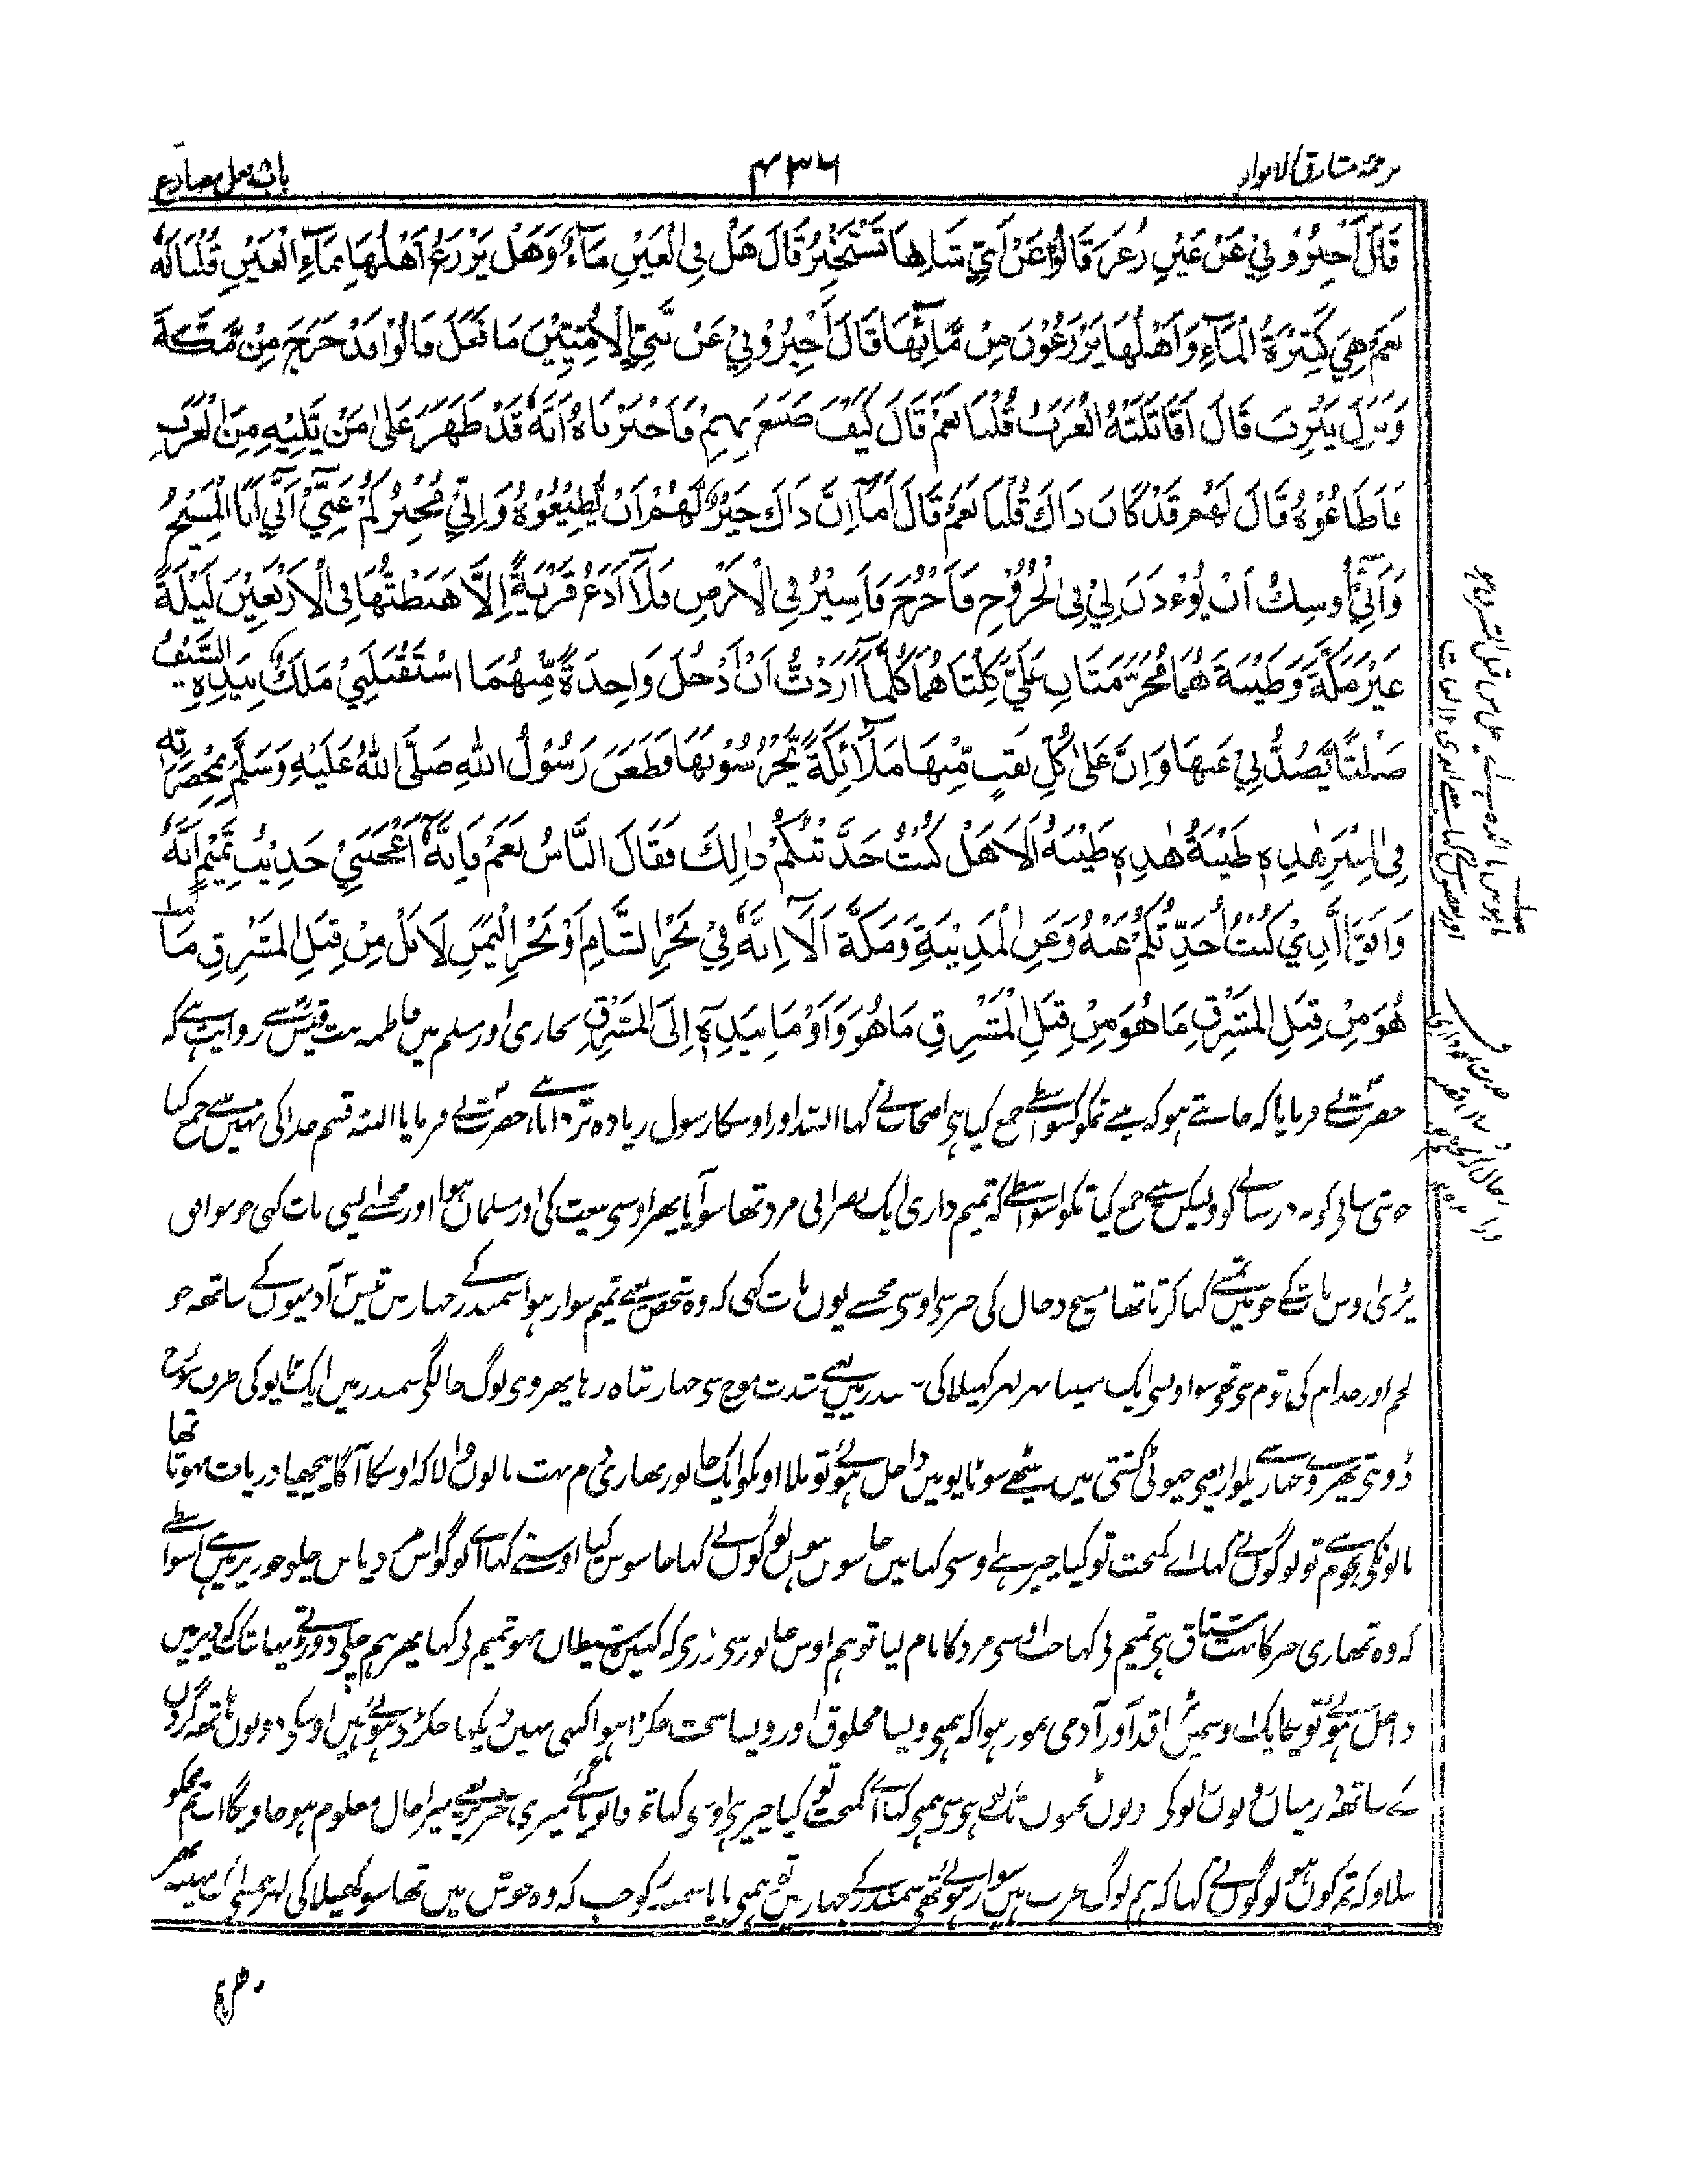 ترجمۂ مشارق الانوار
۴۳۶
باب فعل مضارع
قَالَ أَخْبِرُوْنِيْ عَنْ عَيْنِ زُغَرَ قَالُوْا عَنْ أَيِّ شَانِهَا تَسْتَخْبِرُ قَالَ هَلْ فِي الْعَيْنِ مَآءٌ وَهَلْ يَزْرَعُ اَهْلُهَا بِمَآءِ الْعَيْنِ قُلْنَا لَهٗ
نَعَمْ هِيَ كَثِيْرَةُ الْمَآءِ وَاَهْلُهَا يَزْرَعُوْنَ مِنْ مَّآئِهَا قَالَ أَخْبِرُوْنِيْ عَنْ نَّبِيِّ الْاُمِّيِّيْنَ مَا فَعَلَ قَالُوْا قَدْ خَرَجَ مِنْ مَّكَّةَ
وَنَزَلَ يَثْرِبَ قَالَ اَقَاتَلَتْهُ الْعَرَبُ قُلْنَا نَعَمْ قَالَ كَيْفَ صَنَعَ بِهِمْ فَاَخْبَرْنَاهُ اَنَّهٗ قَدْ ظَهَرَ عَلٰى مَنْ يَّلِيْهِ مِنَ الْعَرَبِ
فَاَطَاعُوْهُ قَالَ لَهُمْ قَدْ كَانَ ذَاكَ قُلْنَا نَعَمْ قَالَ اَمَآ اِنَّ ذَاكَ خَيْرٌ لَّهُمْ اَنْ يُّطِيْعُوْهُ وَاِنِّيْ مُخْبِرُكُمْ عَنِّيْٓ اَنِّيْٓ اَنَا الْمَسِيْحُ
وَاَنِّيْٓ اُوْشِكُ اَنْ يُّوْءْذَنَ لِيْ فِى الْخُرُوْجِ فَاَخْرُجَ فَاَسِيْرُ فِي الْاَرْضِ فَلَآ اَدَعُ قَرْيَةً اِلَّا هَبَطْتُّهَا فِى الْاَرْبَعِيْنَ لَيْلَةً
غَيْرَ مَكَّةَ وَطَيْبَةَ هُمَا مُحَرَّمَتَانِ عَلَيَّ كِلْتَاهُمَا كُلَّمَآ اَرَدْتُّ اَنْ اَدْخُلَ وَاحِدَةً مِّنْهُمَا اسْتَقْبَلَنِيْ مَلَكٌ بِيَدِهِ السَّيْفُ
صَلْتًا يَّصُدُّنِيْ عَنْهَا وَاِنَّ عَلٰى كُلِّ نَقَبٍ مِّنْهَا مَلَآئِكَةً يَّحْرُسُوْنَهَا فَطَعَنَ رَسُوْلُ اللهِ صَلَّى اللهُ عَلَيْهِ وَسَلَّمَ بِمِخْصَرَتِهٖ
فِى الْمِنْبَرِ هٰذِهٖ طَيْبَةُ هٰذِهٖ طَيْبَةُ اَلَا هَلْ كُنْتُ حَدَّثْتُكُمْ ذٰلِكَ فَقَالَ النَّاسُ نَعَمْ فَاِنَّهٗٓ اَعْجَبَنِيْ حَدِيْثُ تَمِيْمٍ اَنَّهٗ
وَافَقَ الَّذِيْ كُنْتُ اُحَدِّثُكُمْ عَنْهُ وَعَنِ الْمَدِيْنَةِ وَمَكَّةَ اَلَآ اِنَّهٗ فِيْ بَحْرِ الشَّامِ اَوْ بَحْرِ الْيَمَنِ لَا بَلْ مِنْ قِبَلِ الْمَشْرِقِ مَا
هُوَ مِنْ قِبَلِ الْمَشْرِقِ مَا هُوَ مِنْ قِبَلِ الْمَشْرِقِ مَا هُوَ وَاَوْمَا بِيَدِهٖٓ اِلَى الْمَشْرِقِ بخاری اور مسلم میں فاطمہ بنت قیس سے روایت ہے کہ
حضرت نے فرمایا کہ جانتے ہو کہ مینے تمکو کسواسطے جمع کیا ہی اصحاب نے کہا اللہ اور اوسکا رسول زیادہ تر دانا ہے حضرت نے فرمایا البتہ قسم خدا کی نہیں مینے جمع کیا
خوشی سنانی کو نہ ڈر سنانے کو ولیکن مینے جمع کیا تمکو اسواسطے کہ تمیم داری ایک نصرانی مرد تھا سو آیا پھر اوسی بیعت کی اور مسلمان ہوا اور مجھسے ایسی بات کہی جو موافق
پڑی اوس بات کے جو مین تمسے کہا کرتا تھا مسیح دجال کی خبر سی اوسی مجھسے یوں بات کہی کہ وہ شخص یعنے تمیم سوار ہوا سمندر کے جہاز میں تیس آدمیوں کے ساتھہ جو
لخم اور جذام کی قوم سی تھی سو اوسی ایک مہینا بھر لہر کھیلا کی سمندر میں یعنے شدت موج سی جہاز تباہ رہا پھر وی لوگ جا لگی سمندر میں ایک ٹاپو کی طرف سورج
ڈوبتی پھر وے جہاز سے پلوار یعنی چھوٹی کشتی میں بیٹھے سو ٹاپو میں داخل ہوئے تو ملا اونکو ایک جانور بھاری دم بہت بالوں والا کہ اوسکا آگا پیچھا دریافت نہوتا تھا
بالونکی ہجوم سے تو لوگوں نے کہا اے کمبخت تو کیا چیز ہے اوسی کہا میں جاسوس ہوں لوگوں نے کہا جاسوس کیا اوسنے کہا اے لوگو اس مرد پاس چلو جو دیر میں ہے اسواسطے
کہ وہ تمھاری خبر کا بہت مشتاق ہی تمیم نی کہا جب اوسی مرد کا نام لیا تو ہم اوس جانور سی ڈری کہ کہیں شیطان نہو تمیم نی کہا پھر ہم چلی دوڑتے یہانتک کہ دیر میں
داخل ہوئے تو یکایک اوسمیں بڑا قد آور آدمی نمود ہوا کہ ہمنی ویسا مخلوق اور ویسا سخت جکڑا ہوا کبھی نہیں دیکھا جکڑے ہوئے ہیں اوسکی دونوں ہاتھہ گردن
کے ساتھہ درمیان دونوں زانو کی دونوں ٹخنوں تک لوہے سی ہمنی کہا اے کمبخت تو کیا چیز ہی اوسنی کہا تم قابو پاگئے میری خبر پر یعنے میرا حال معلوم ہو جاویگا اب تم مجکو
بتلاؤ کہ تم کون ہو لوگوں نے کہا کہ ہم لوگ عرب ہیں سوار ہوئے تھے سمندر کے جہاز میں تو ہمنی پایا سمندر کو جب کہ وہ جوش میں تھا سو کھیلا کی لہر ہمسی ایک مہینہ بھر